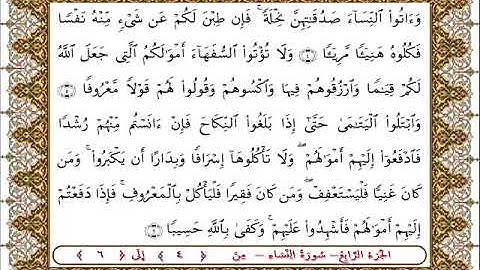 وَءَاتُواْ النِّسَاءَ صَدُقَاتِهِنَّ نِحْلَةً ۚ فَإِن طِبْنَ لَكُمْ عَن شَيْءٍ مِّنْهُ نَفْسًا
فَكُلُوهُ هَنِيئًا مَّرِيئًا ۝٤ وَلَا تُؤْتُواْ السُّفَهَاءَ أَمْوَالَكُمُ الَّتِي جَعَلَ اللَّهُ
لَكُمْ قِيَامًا وَارْزُقُوهُمْ فِيهَا وَاكْسُوهُمْ وَقُولُواْ لَهُمْ قَوْلًا مَّعْرُوفًا ۝٥
وَابْتَلُواْ الْيَتَامَى حَتَّى إِذَا بَلَغُواْ النِّكَاحَ فَإِنْ ءَانَسْتُم مِّنْهُمْ رُشْدًا
فَادْفَعُواْ إِلَيْهِمْ أَمْوَالَهُمْ ۖ وَلَا تَأْكُلُوهَا إِسْرَافًا وَبِدَارًا أَن يَكْبَرُواْ ۚ وَمَن
كَانَ غَنِيًّا فَلْيَسْتَعْفِفْ ۖ وَمَن كَانَ فَقِيرًا فَلْيَأْكُلْ بِالْمَعْرُوفِ ۚ فَإِذَا دَفَعْتُمْ
إِلَيْهِمْ أَمْوَالَهُمْ فَأَشْهِدُواْ عَلَيْهِمْ ۚ وَكَفَى بِاللَّهِ حَسِيبًا ۝٦
الجزء الرّابع - سُورَةُ النِّسَاء - مِن ﴿ ٤ ﴾ إلى ﴿ ٦ ﴾